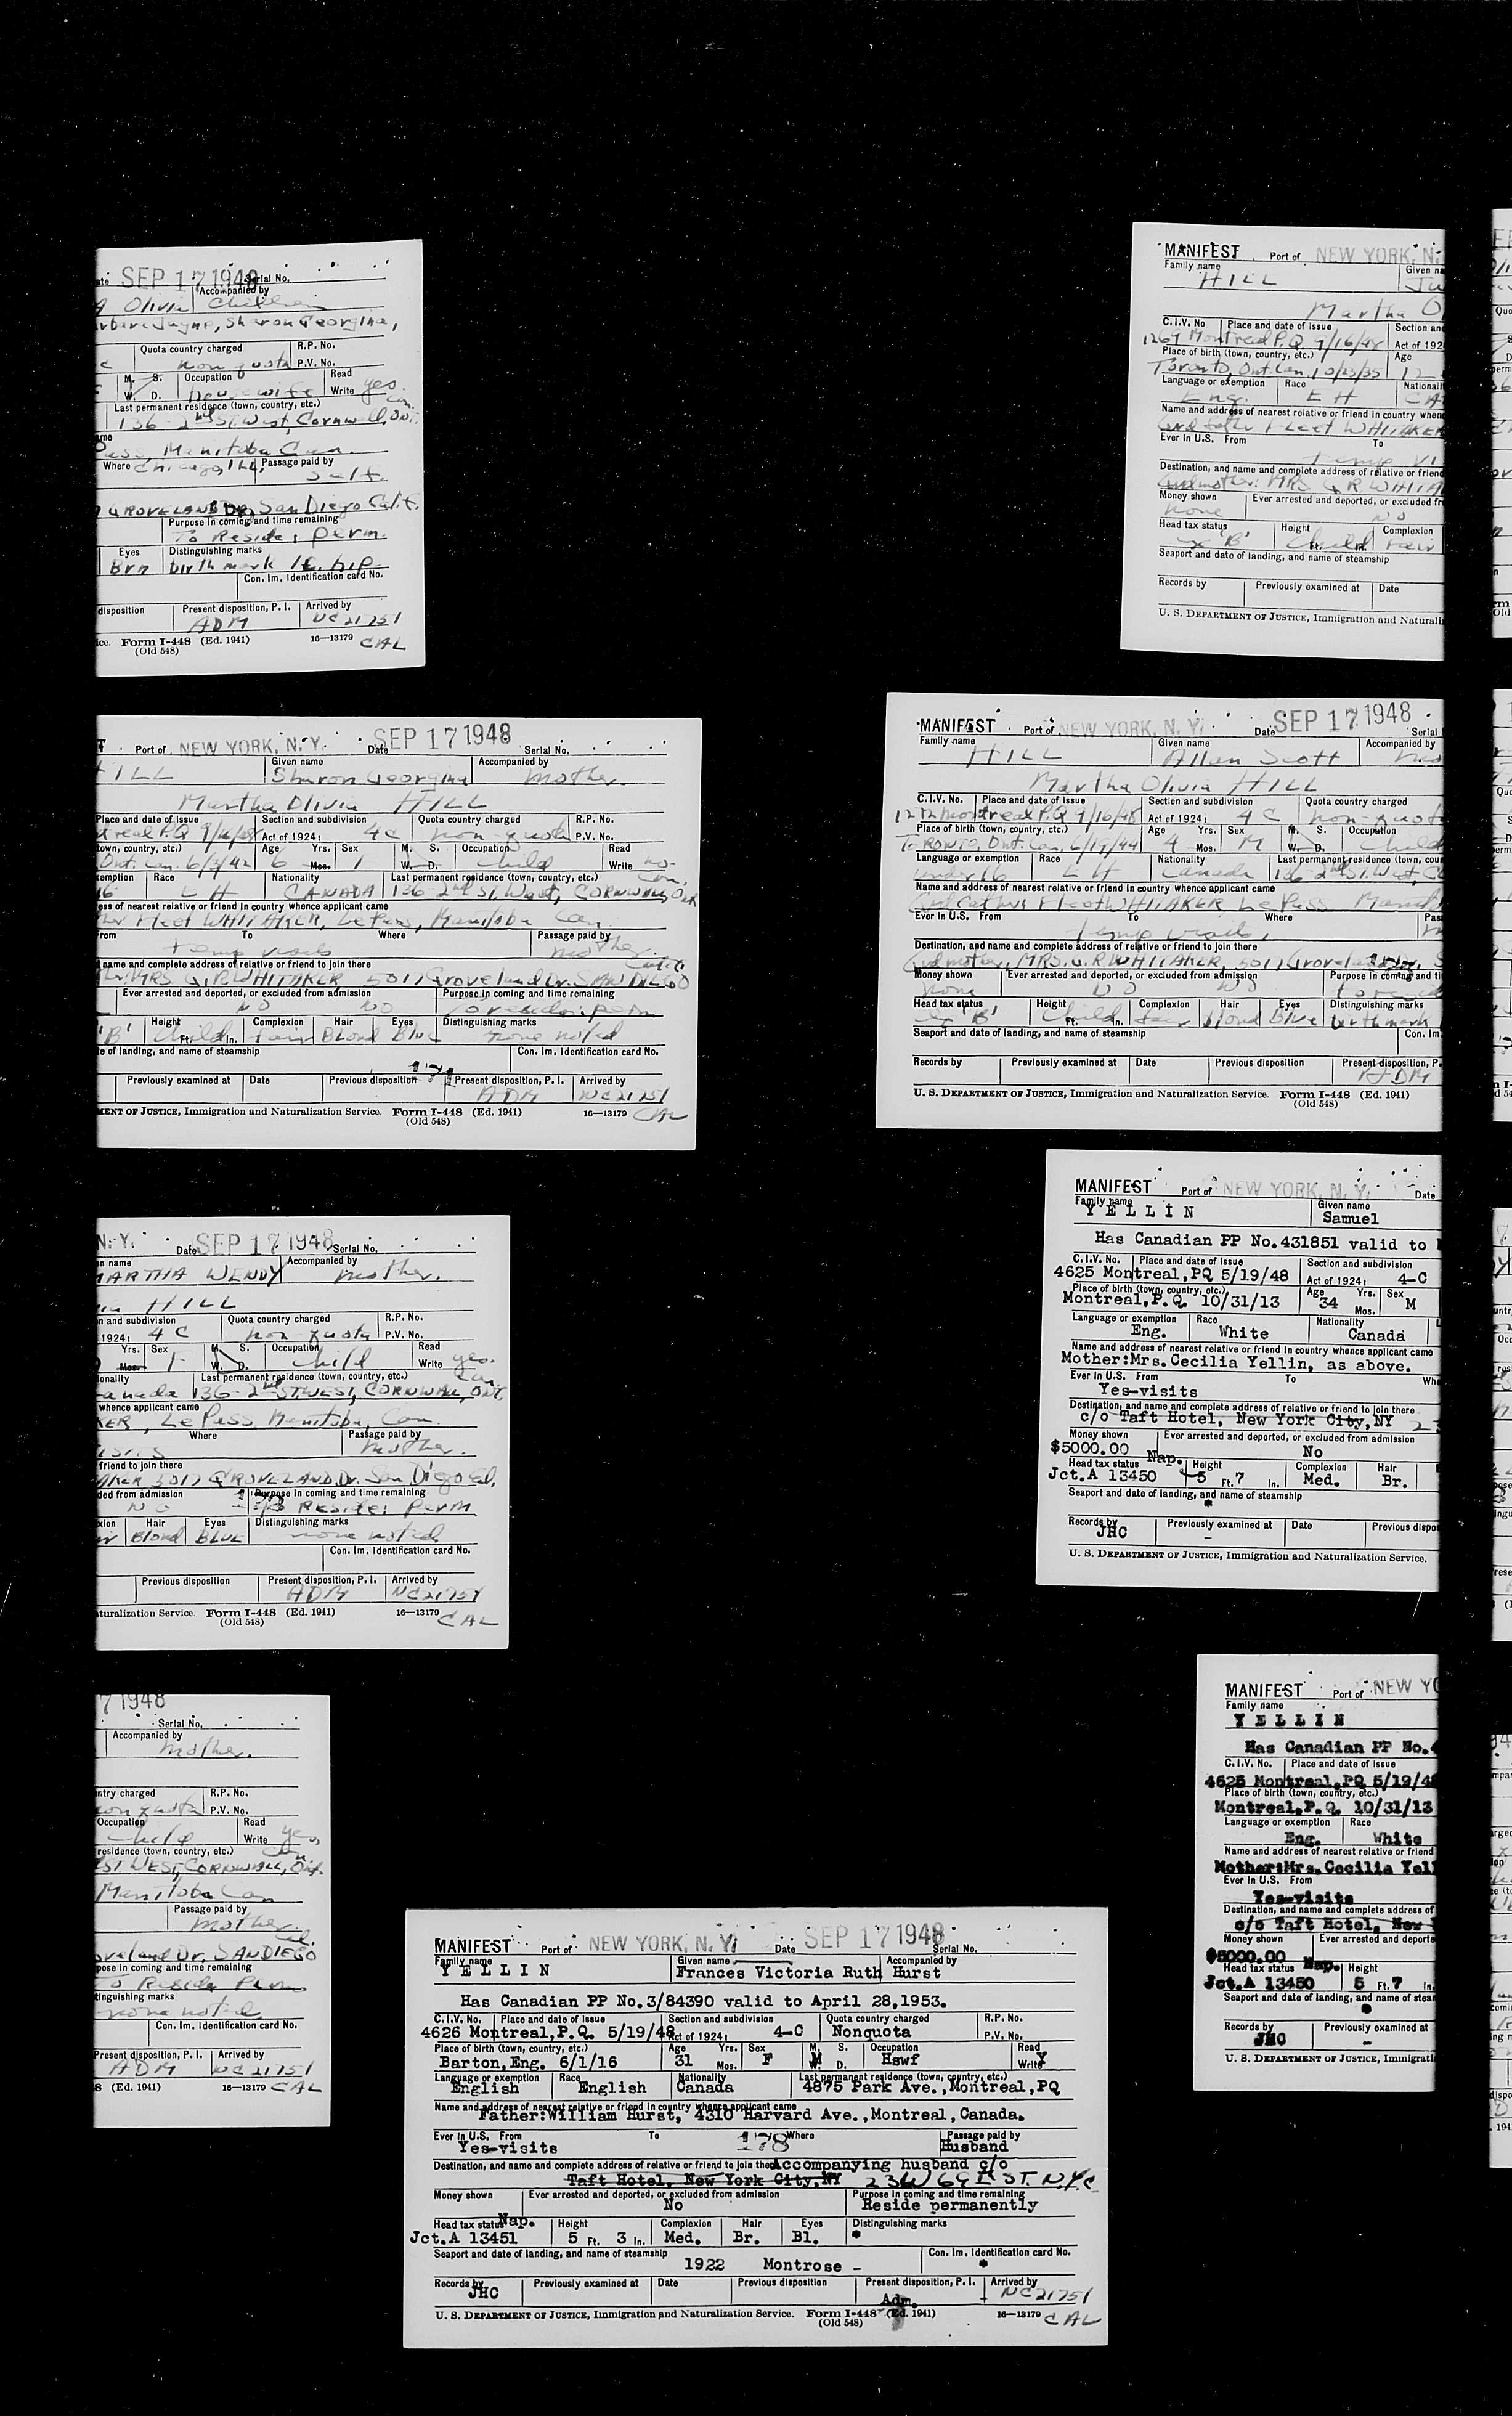 ate SEP 17 1948 Serial No.
Olivia Accompanied by Children
Jayne, Sharon Georgina,
Quota country charged non quota R.P. No. P.V. No.
M. S. W. D. Occupation housewife Read Write yes.
Last permanent residence (town, country, etc.)
136-2nd St. West, Cornwall, Ont.
Manitoba Can.
Where Chicago, Ill, Passage paid by
Self.
GROVELAND Dr, San Diego Calif.
Purpose in coming and time remaining
To Reside; perm.
Eyes Distinguishing marks
Brn birth mark hip
Con. Im. Identification card No.
disposition Present disposition, P. I. Arrived by
ADM NC 21751
ice. Form I-448 (Ed. 1941) 16—13179 CAL
(Old 548)
MANIFEST Port of NEW YORK, N.
Family name Given na
HILL Ju
Martha O
C.I.V. No Place and date of issue Section and
1269 Montreal P.Q. 9/16/48 Act of 192
Place of birth (town, country, etc.) Age
Toronto, Ont. Can. 10/23/35 12
Language or exemption Race Nationali
Eng. EH CA
Name and address of nearest relative or friend in country when
Fleet WHITAKER
Ever in U.S. From To
temp vi
Destination, and name and complete address of relative or friend
Grdmother: MRS G R WHITA
Money shown Ever arrested and deported, or excluded fr
none NO
Head tax status Height Complexion
'B' Child Ft. In. Fair
Seaport and date of landing, and name of steamship
Records by Previously examined at Date
U. S. DEPARTMENT OF JUSTICE, Immigration and Naturali
T Port of NEW YORK, N.Y. Date SEP 17 1948 Serial No.
Given name Accompanied by
HILL Sharon Georgina mother
Martha Olivia HILL
Place and date of issue Section and subdivision Quota country charged R.P. No.
treal P.Q Act of 1924: 4C non-quota P.V. No.
town, country, etc.) Age Yrs. Sex M. S. Occupation Read
Ont. Can. 6/3/42 6 Mos. W. D. Child Write no.
emption Race Nationality Last permanent residence (town, country, etc.)
16 EH CANADA 136-2nd St. West, CORNWALL, Ont
ess of nearest relative or friend in country whence applicant came
Fleet WHITAKER, Le Pass, Manitoba Can
From To Where Passage paid by
temp visits mother.
name and complete address of relative or friend to join there
MRS G.R. WHITAKER 5017 Groveland Dr. SAN DIEGO Calif.
Ever arrested and deported, or excluded from admission Purpose in coming and time remaining
NO NO To reside: perm
Height Complexion Hair Eyes Distinguishing marks
'B' Child Ft. In. Fair Blond Blue none noted
e of landing, and name of steamship Con. Im. Identification card No.
Previously examined at Date Previous disposition Present disposition, P. I. Arrived by
ADM NC 21751
MENT OF JUSTICE, Immigration and Naturalization Service. Form I-448 (Ed. 1941) 16—13179 CAL
(Old 548)
MANIFEST Port of NEW YORK, N. Y. Date SEP 17 1948 Serial
Family name Given name Accompanied by
HILL Allan Scott mo
Martha Olivia HILL
C.I.V. No. Place and date of issue Section and subdivision Quota country charged
1272 Montreal P.Q 9/16/48 Act of 1924: 4C non-quot
Place of birth (town, country, etc.) Age Yrs. Sex M. S. Occupation
TORONTO, Ont. Can. 6/17/44 4 Mos. M W. D. Child
Language or exemption Race Nationality Last permanent residence (town, cou
under 16 EH Canada 136-2nd St. West, C
Name and address of nearest relative or friend in country whence applicant came
Fleet WHITAKER Le Pass Manit
Ever in U.S. From To Where Pas
temp visits
Destination, and name and complete address of relative or friend to join there
Grdmother, MRS. G.R WHITAKER, 5017 Groveland Dr. S
Money shown Ever arrested and deported, or excluded from admission Purpose in coming and ti
none NO NO To resid
Head tax status Height Complexion Hair Eyes Distinguishing marks
'B' Child Ft. In. Fair blond Blue birthmark
Seaport and date of landing, and name of steamship Con. Im
Records by Previously examined at Date Previous disposition Present disposition, P.
ADM
U. S. DEPARTMENT OF JUSTICE, Immigration and Naturalization Service. Form I-448 (Ed. 1941)
(Old 548)
N. Y. Date SEP 17 1948 Serial No.
n name Accompanied by
MARTHA WENDY mother.
HILL
n and subdivision Quota country charged R.P. No.
1924: 4C non-quota P.V. No.
Yrs. Sex M. S. Occupation Read
Mos. F W. D. Child Write yes.
onality Last permanent residence (town, country, etc.) Can.
anada 136-2nd ST. WEST, CORNWALL, ONT.
whence applicant came
KER, Le Pass Manitoba, Can.
Where Passage paid by
isits mother.
friend to join there
AKER 5017 GROVELAND, Dr. San Diego Cal.
ded from admission Purpose in coming and time remaining
NO To Reside: Perm
xion Hair Eyes Distinguishing marks
ir Blond BLUE none noted
Con. Im. Identification card No.
Previous disposition Present disposition, P. I. Arrived by
ADM NC 21751
turalization Service. Form I-448 (Ed. 1941) 16—13179 CAL
(Old 548)
MANIFEST Port of NEW YORK, N. Y. Date
Family name Given name
YELLIN Samuel
Has Canadian PP No. 431851 valid to
C.I.V. No. Place and date of issue Section and subdivision
4625 Montreal, PQ 5/19/48 Act of 1924: 4-C
Place of birth (town, country, etc.) Age Yrs. Sex
Montreal, P. Q. 10/31/13 34 Mos. M
Language or exemption Race Nationality
Eng. White Canada
Name and address of nearest relative or friend in country whence applicant came
Mother: Mrs. Cecilia Yellin, as above.
Ever in U.S. From To Whe
Yes-visits
Destination, and name and complete address of relative or friend to join there
c/o Taft Hotel, New York City, NY 2
Money shown Ever arrested and deported, or excluded from admission
$5000.00 No
Head tax status Nap. Height Complexion Hair
Jct.A 13450 5 Ft. 7 In. Med. Br.
Seaport and date of landing, and name of steamship
*
Records by Previously examined at Date Previous dispo
JHC -
U. S. DEPARTMENT OF JUSTICE, Immigration and Naturalization Service.
7 1948
Serial No.
Accompanied by
mother.
ntry charged R.P. No.
non quota P.V. No.
Occupation Read
child Write yes,
residence (town, country, etc.)
ST WEST, CORNWALL, Ont.
Manitoba Can
Passage paid by
mother.
oveland Dr, SAN DIEGO Cal.
pose in coming and time remaining
To Reside Perm
tinguishing marks
none noted
Con. Im. Identification card No.
Present disposition, P. I. Arrived by
ADM NC 21751
8 (Ed. 1941) 16—13179 CAL
MANIFEST Port of NEW YO
Family name
YELLIN
Has Canadian PP No. 4
C.I.V. No. Place and date of issue
4625 Montreal, PQ 5/19/48
Place of birth (town, country, etc.)
Montreal, P. Q. 10/31/13
Language or exemption Race
Eng. White
Name and address of nearest relative or friend
Mother: Mrs. Cecilia Yell
Ever in U.S. From
Yes-visits
Destination, and name and complete address of
c/o Taft Hotel, New
Money shown Ever arrested and deporte
$5000.00
Head tax status Nap. Height
Jct.A 13450 5 Ft. 7 In.
Seaport and date of landing, and name of stea
*
Records by Previously examined at
JHC -
U. S. DEPARTMENT OF JUSTICE, Immigrati
MANIFEST Port of NEW YORK, N. Y. Date SEP 17 1948 Serial No.
Family name Given name Accompanied by
YELLIN Frances Victoria Ruth Hurst
Has Canadian PP No. 3/84390 valid to April 28, 1953.
C.I.V. No. Place and date of issue Section and subdivision Quota country charged R.P. No.
4626 Montreal, P.Q. 5/19/48 Act of 1924: 4-C Nonquota P.V. No.
Place of birth (town, country, etc.) Age Yrs. Sex M. S. Occupation Read
Barton, Eng. 6/1/16 31 Mos. F M W. D. Hswf Write Y
Language or exemption Race Nationality Last permanent residence (town, country, etc.)
English English Canada 4875 Park Ave., Montreal, PQ
Name and address of nearest relative or friend in country whence applicant came
Father: William Hurst, 4310 Harvard Ave., Montreal, Canada.
Ever in U.S. From To 178 Where Passage paid by
Yes-visits Husband
Destination, and name and complete address of relative or friend to join there Accompanying husband c/o
Taft Hotel, New York City, NY 23 W 69 ST. N.Y.C
Money shown Ever arrested and deported, or excluded from admission Purpose in coming and time remaining
No Reside permanently
Head tax status Nap. Height Complexion Hair Eyes Distinguishing marks
Jct.A 13451 5 Ft. 3 In. Med. Br. Bl. *
Seaport and date of landing, and name of steamship Con. Im. Identification card No.
1922 Montrose - *
Records by Previously examined at Date Previous disposition Present disposition, P. I. Arrived by
JHC Adm. NC 21751
U. S. DEPARTMENT OF JUSTICE, Immigration and Naturalization Service. Form I-448 (Ed. 1941) 16—13179 CAL
(Old 548)